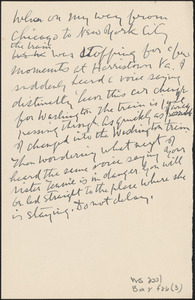 When on my way from
Chicago to New York City
the train
was stopping for a few
moments at Harristown Va. I
suddenly heard a voice saying
distinctly leave this car change
for Washington the train is
passing though as quickly as possible
I changed into the Washington train
Then wondering what next I
heard the same voice saying your
sister is in danger you will
be led straight to the place where she
is staying. Do not delay.